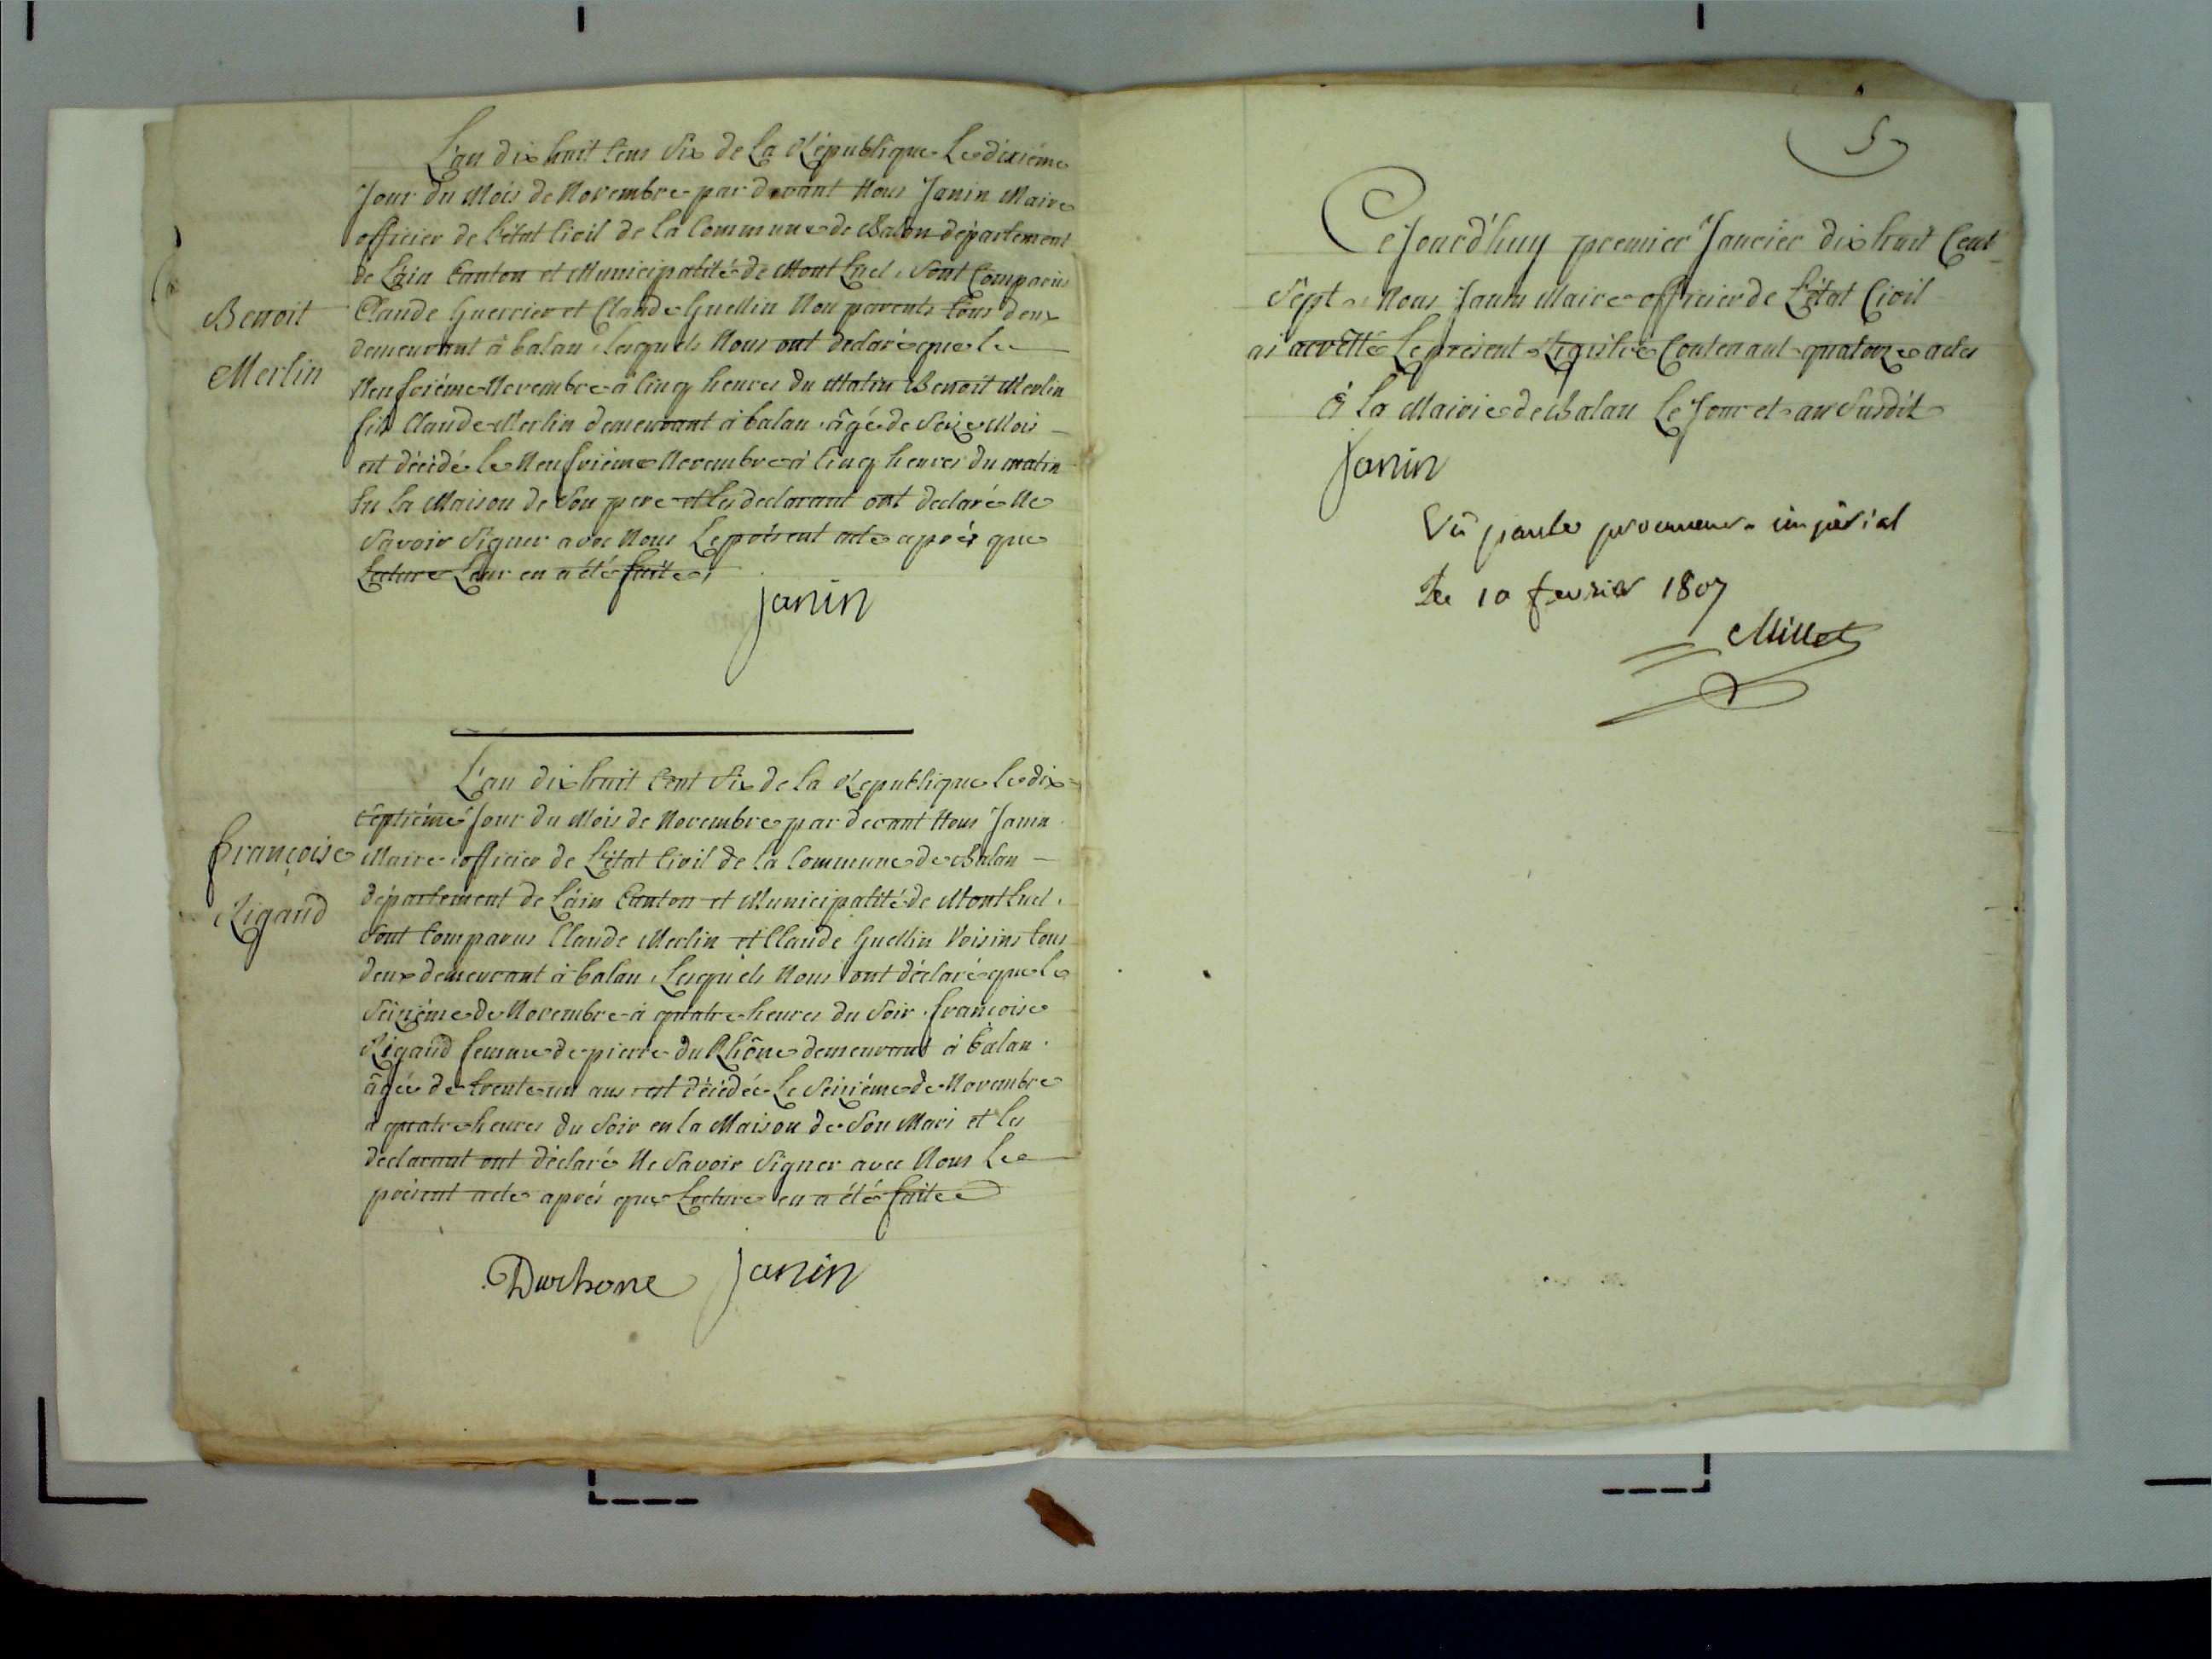 L'an dix huit Cens Six de La République Le dixième
Jour du Mois de Novembre par devant Nous Janin Maire
officier de L'état Civil de La Commune de Balan département
de L'ain Canton et Municipalité de Mont Luel, Sont Comparus
Claude Guerrier et Claude Guellin Non parents tous deux
demeurant à balan, Lesquels Nous ont declaré que le
Neufvième Novembre à Cinq heures du Matin Benoit Merlin
fils Claude Merlin demeurant à balan, âgé de Seize Mois
est décédé le Neufvième Novembre à Cinq heures du matin
En La Maison de Son pere et les declarant ont declaré Ne
Savoir Signer avec Nous Le présent acte après que
Lecture Leur en a été faite,
Benoit
Merlin
Janin
L'an dix huit Cent Six de la Republique Le dix
Septième Jour du Mois de Novembre par devant Nous Janin
Maire officier de L'état Civil de la Commune de Balan
département de L'ain Canton et Municipalité de Mont Luel,
Sont Comparus Claude Merlin et Claude Guellin Voisins tous
deux demeurant à balan, Lesquels Nous ont déclaré que Le
Seizième de Novembre à quatre heures du Soir, francoise
Rigaud femme de pierre du Rhône demeurant à balan,
âgée de trente un ans est décédée Le Seizième de Novembre
a quatre heures du Soir en la Maison de Son Mari et les
declarant ont déclaré Ne Savoir Signer avec Nous Le
présent acte après que Lecture en a été faite
Françoise
Rigaud
Durhone Janin
5
Ce Jourd'huy premier Janvier dix huit Cent
Sept, Nous Janin Maire officier de L'état Civil
ai arretté Le présent Registre Contenant quatorze actes
à La Mairie de Balan Le Jour et an Susdit
Janin
Vû par le procureur impérial
Le 10 fevrier 1807
Millet